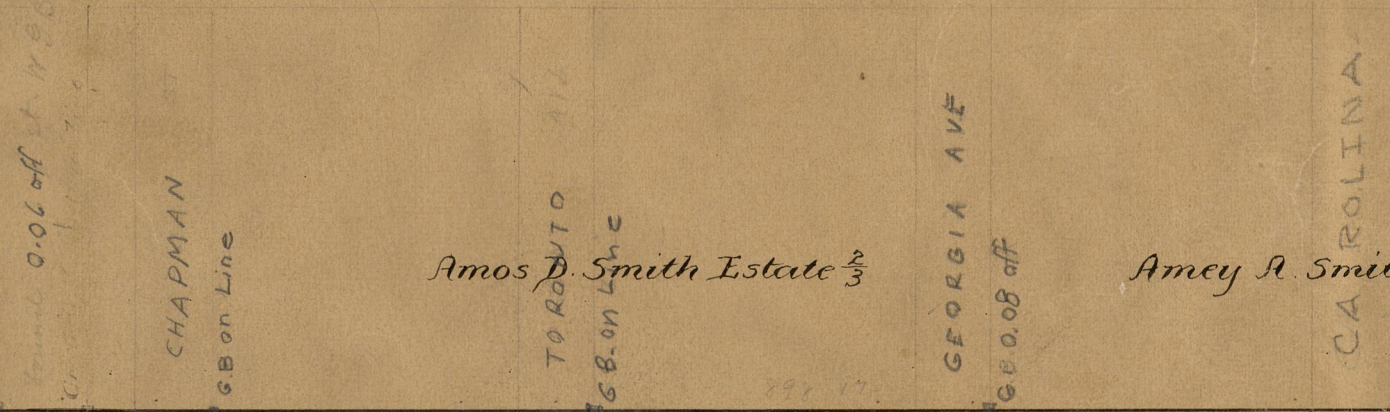 0.06 off
CHAPMAN
G.B on Line
TORONTO
G B. on Line
Amos D. Smith Estate 2/3
GEORGIA AVE
G.B 0.08 off
Amey A. Smi
CAROLINA